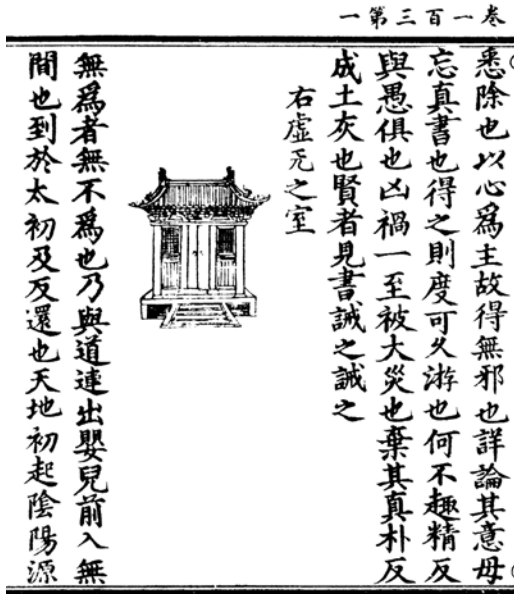 卷一百三第一
悉除也以心爲主故得無邪也詳論其意母
忘真書也得之則度可久游也何不趣精反
與愚俱也凶禍一至被大災也棄其真朴反
成土灰也賢者見書誡之誡之
右虛无之室
無爲者無不爲也乃與道連出嬰兒前入無
間也到於太初及反還也天地初起陰陽源